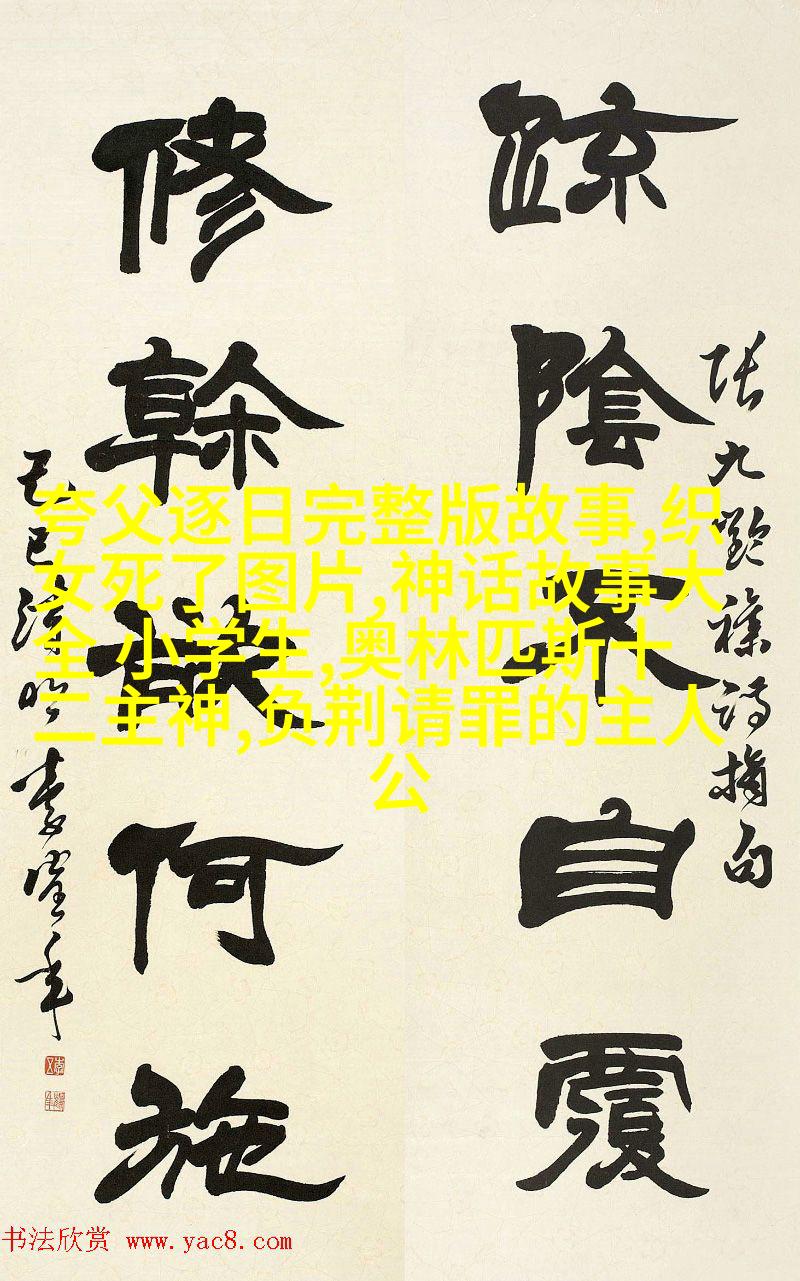 疏陰不自覆
張九齡襍詩摘句
修幹欲何施
己巳
夸父逐日完整版故事,织
女死了图片,神话故事大
全 小学生,奥林匹斯十
二主神,负荆请罪的主人
公
书法欣赏 www.yac8.com